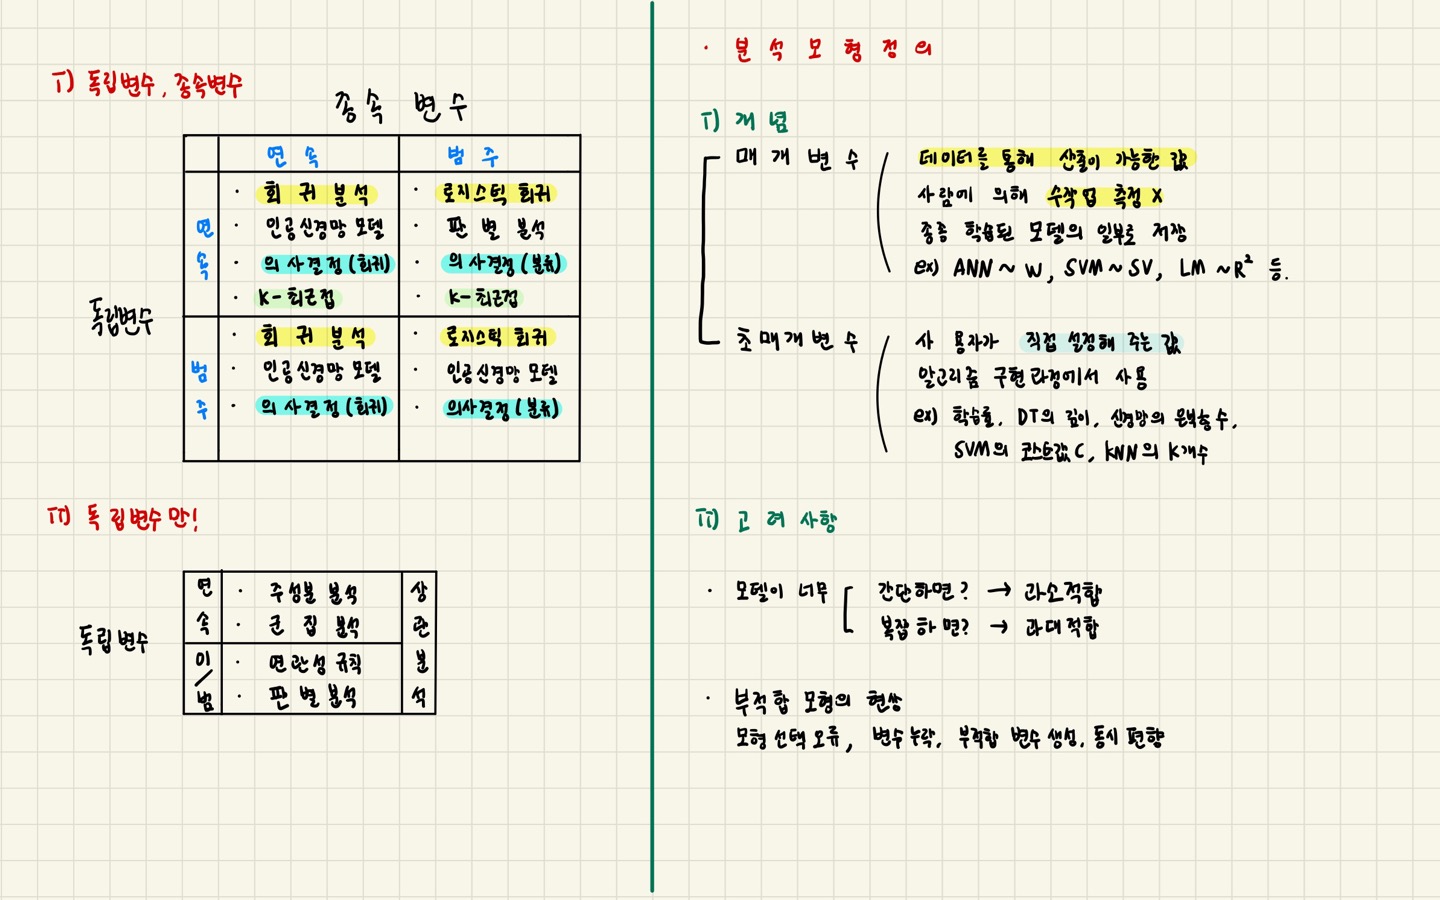 i) 독립변수, 종속변수
종속 변수
연속 범주
· 회귀분석 · 로지스틱 회귀
연 · 인공신경망 모델 · 판별 분석
속 · 의사결정(회귀) · 의사결정(분류)
· K-최근접 · K-최근접
독립변수
· 회귀분석 · 로지스틱 회귀
범 · 인공신경망 모델 인공신경망 모델
주 · 의사결정(회귀) 의사결정(분류)
ii) 독립변수만!
독립변수
연 · 주성분 분석 상
속 · 군집 분석 관
이 · 연관성 규칙 분
/
범 · 판별분석 석
· 분석모형정의
i) 개념
매개변수 데이터를 통해 산출이 가능한 값
사람에 의해 수작업 측정 X
종종 학습된 모델의 일부로 저장
ex) ANN ~ W, SVM ~ SV, LM ~ R² 등.
초매개변수 사용자가 직접 설정해 주는 값
알고리즘 구현과정에서 사용
ex) 학습률, DT의 깊이, 신경망의 은닉층 수,
SVM의 코스트값 C, KNN의 K개수
ii) 고려사항
· 모델이 너무 간단하면? → 과소적합
복잡하면? → 과대적합
· 부적합 모형의 현상
모형 선택 오류, 변수 누락, 부적합 변수 생성, 동시 편향